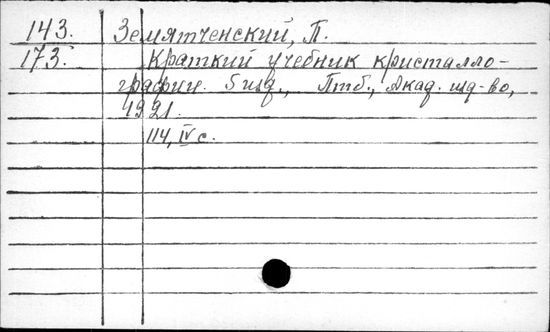 143. Земятченский, П.
173. Краткий учебник кристалло-
графии. 5 изд., Птб., Акад. изд-во,
1921.
114, IV с.